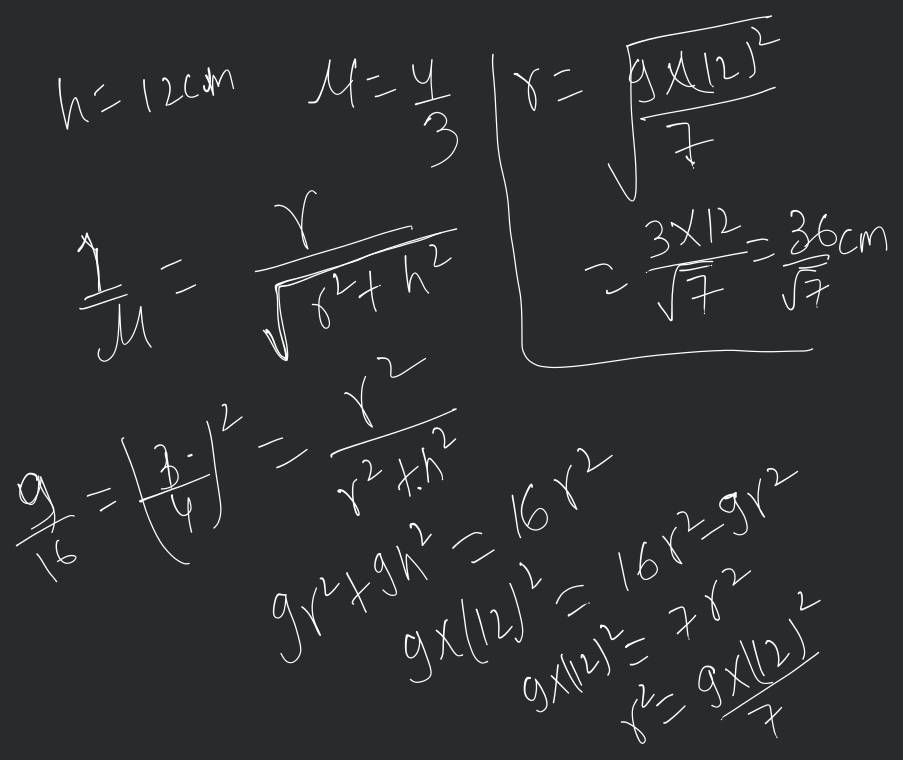 h = 12cm μ = 4/3
1/μ = r/√(r²+h²)
9/16 = (3/4)² = r²/(r²+h²)
9r²+9h² = 16r²
9x(12)² = 16r²-9r²
9x(12)² = 7r²
r² = 9x(12)²/7
r = √(9x(12)²/7)
= 3x12/√7 = 36/√7 cm